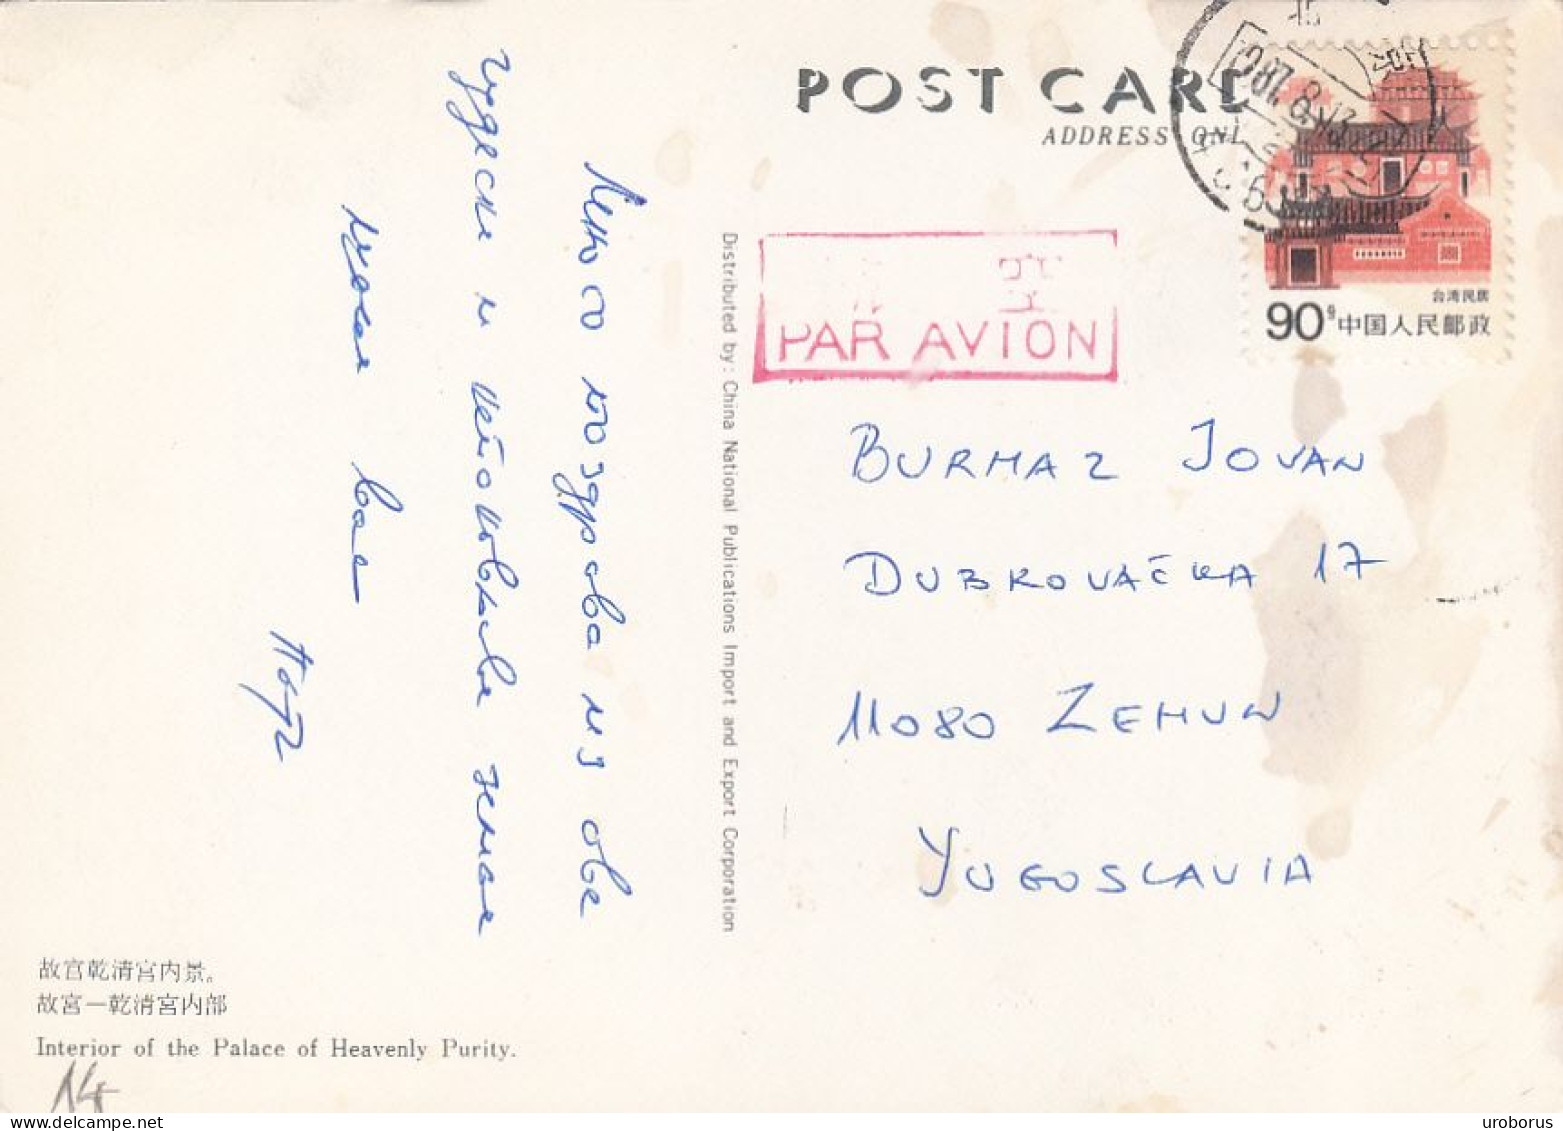 POST CARD
ADDRESS ONL
1987.8.
航空
PAR AVION
台湾民居
90分 中国人民邮政
Много поздрава из ове
чудесне и
земље
воле вас
Distributed by: China National Publications Import and Export Corporation
BURMAZ JOVAN
DUBROVAČKA 17
11080 ZEMUN
YUGOSLAVIA
故宫乾清宫内景。
故宮一乾清宮内部
Interior of the Palace of Heavenly Purity.
14
uroborus